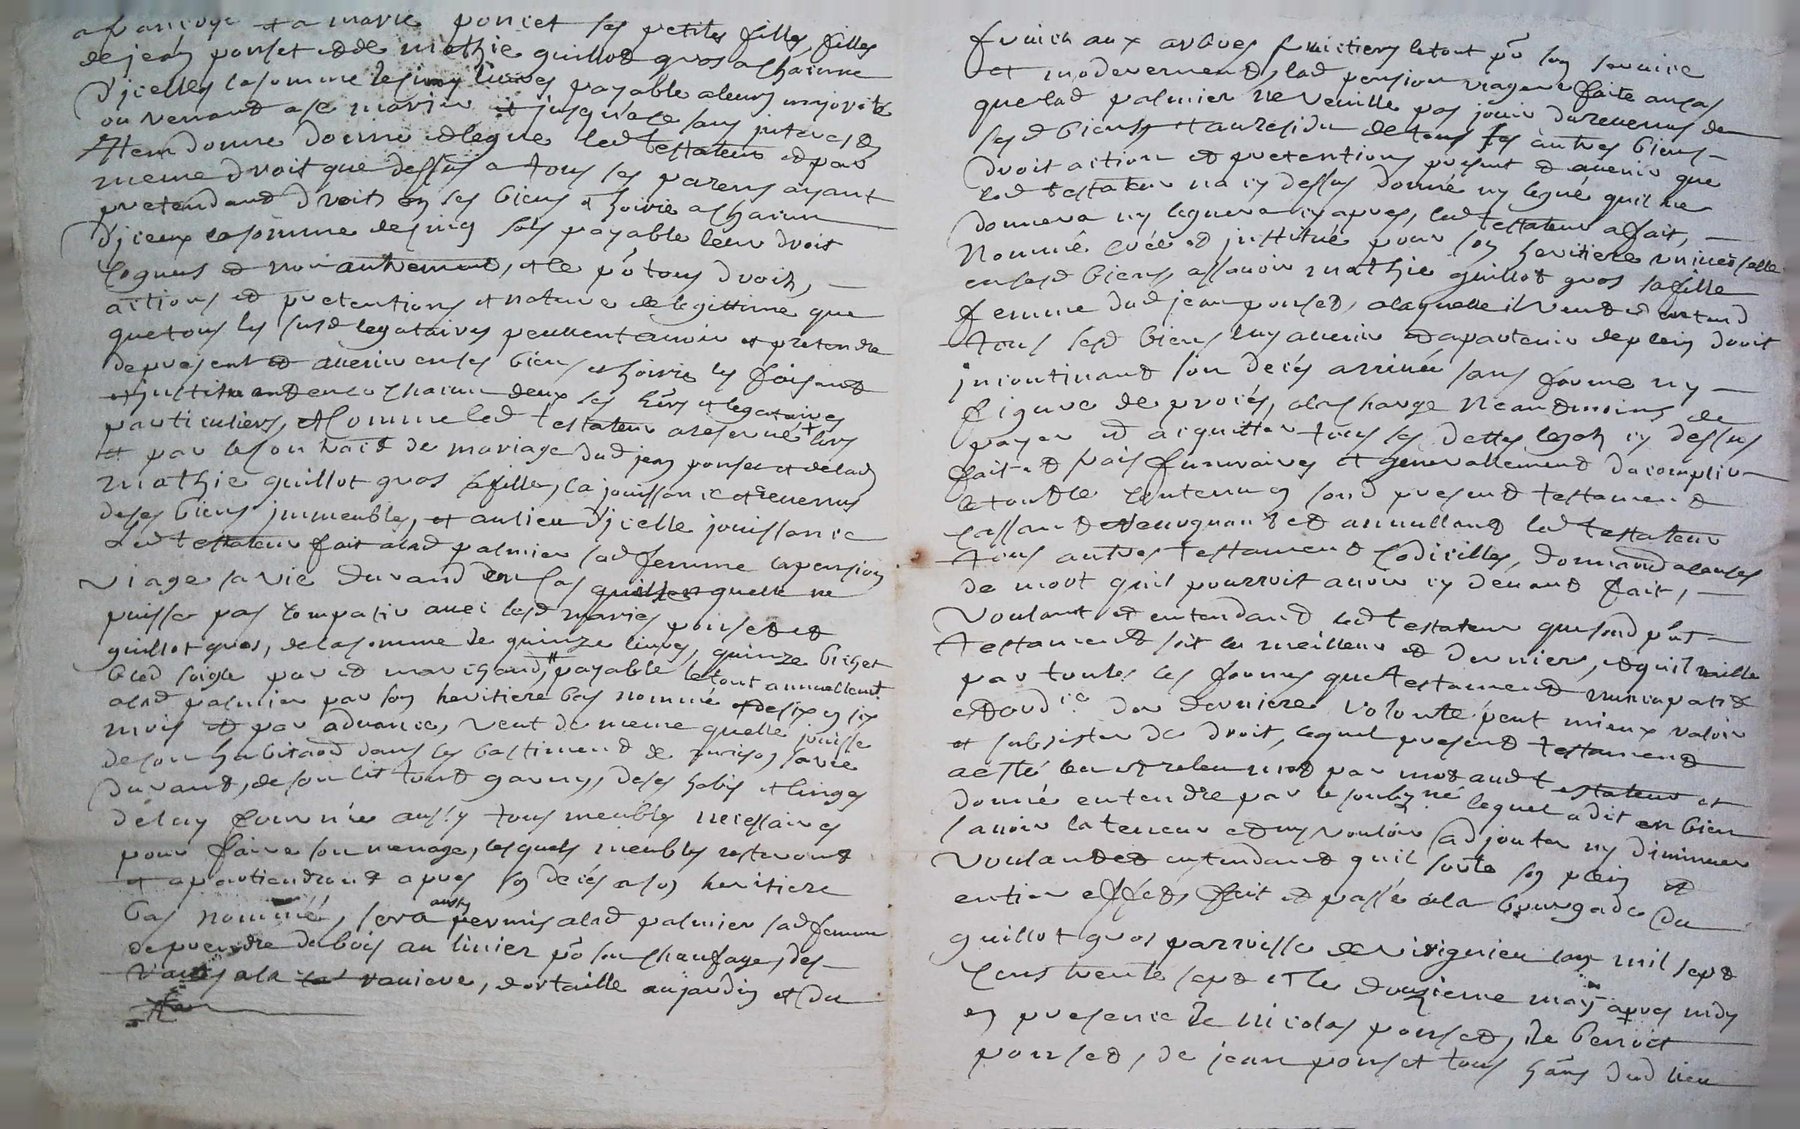 a francoyse et a marie poncet ses petites filles, filles
de jean ponset et de mathie guillot gros a chacune
d'jcelles la somme de cinq livres payable a leurs majorité
ou venand a se marier et jusqu'a ce sans jnterest
Jtem donne donne et legue led testateur et par
meme droit que dessus a tous ses parens ayant
pretendant droit en ses biens et hoirie a chacun
d'jceux la somme de cinq sols payable leur droit
cognus et non autrement, et ce po tous droits,
actions et pretentions et nature de legittime que
que tous les susd legataires peuvent avoir et pretendre
de present et avenir en ses biens et hoirie les faisant
et jnstituant en ce chacun deux ses hers et legataires
particuliers, et comme led testateur a reservé
et par le contract de mariage dud jean ponset et de lad
mathie guillot gros sa fille, la jouissance et revenus
de ses biens jmmeubles, et au lieu d'jcelle jouissance
led testateur fait a lad palmier sad femme la pension
viage sa vie durand en cas quelle ne
puisse pas compatir avec lesd mariés ponset et
guillot gros, de la somme de quinze livres, quinze bichet
bled seigle par et marchand, payable le tout annuellemt
a lad palmier par son heritiere bas nommé et de six en six
mois et par advance, veut de meme quelle jouisse
de son habitaon dans les bastiment de sa vie
durant, de son lit tout garny, de ses habis et linges
delay fournie aussy tous meubles necessaires
pour faire son menage, lesquels meubles resteront
et apartiendront apres son decés a son heritiere
bas nommée, sera aussy permis a lad palmier sad femme
de prendre du bois au linier po son chaufage, des
raves a la raviere, dortaille au jardin et du
fruict aux arbres fruictiers le tout po son service
et moderement, lad pension viagere faite en cas
que lad palmier ne veuille pas jouir du revenus de
sesd biens et au residu de tous ses autres biens
droit action et pretentions present et avenir que
led testateur na cy dessus donné ny legué quil ne
donnera ny leguera cy apres, led testateur a fait,
nommé créé et jnstitué pour son heritiere universelle
en sesd biens, assavoir mathie guillot gros sa fille
femme dud jean ponset, a laquelle il veut et entend
tous sesd biens luy avenir et apartenir de plein droit
jncontinand son decés arrivé sans forme ny
figure de procés, a la charge neandmoins de
payer et acquitter tous ses dettes legats cy dessus
fait et frais funeraires et generallement dacomplir
le tout le contenu en sond present testament
cassant revoquant et annullant led testateur
tous autres testament codicilles, donnaod a causes
de mort quil pourroit avoir cy devant fait,
voulant et entendand led testateur que sond pnt
testament soit le meilleur et dernier, et quil vaille
par toutes les formes que testament nuncupatif
et ordce de derniere volonté peut mieux valoir
et subsister de droit, lequel present testament
a esté leu et releu mot par mot aud testateur et
donné entendre par le soubzné lequel a dit en bien
savoir la teneur et ny vouloir adjouter ny diminuer
voulant et entendant quil sorte son plein et
entier effect, fait et passé a la bourgade du
guillot gros parroisse de virignieu lan mil sept
cens trente sept et le douzieme may apres midy
en presence de nicolas ponset, de benoit
ponset, de jean ponset tous hãns dud lieu